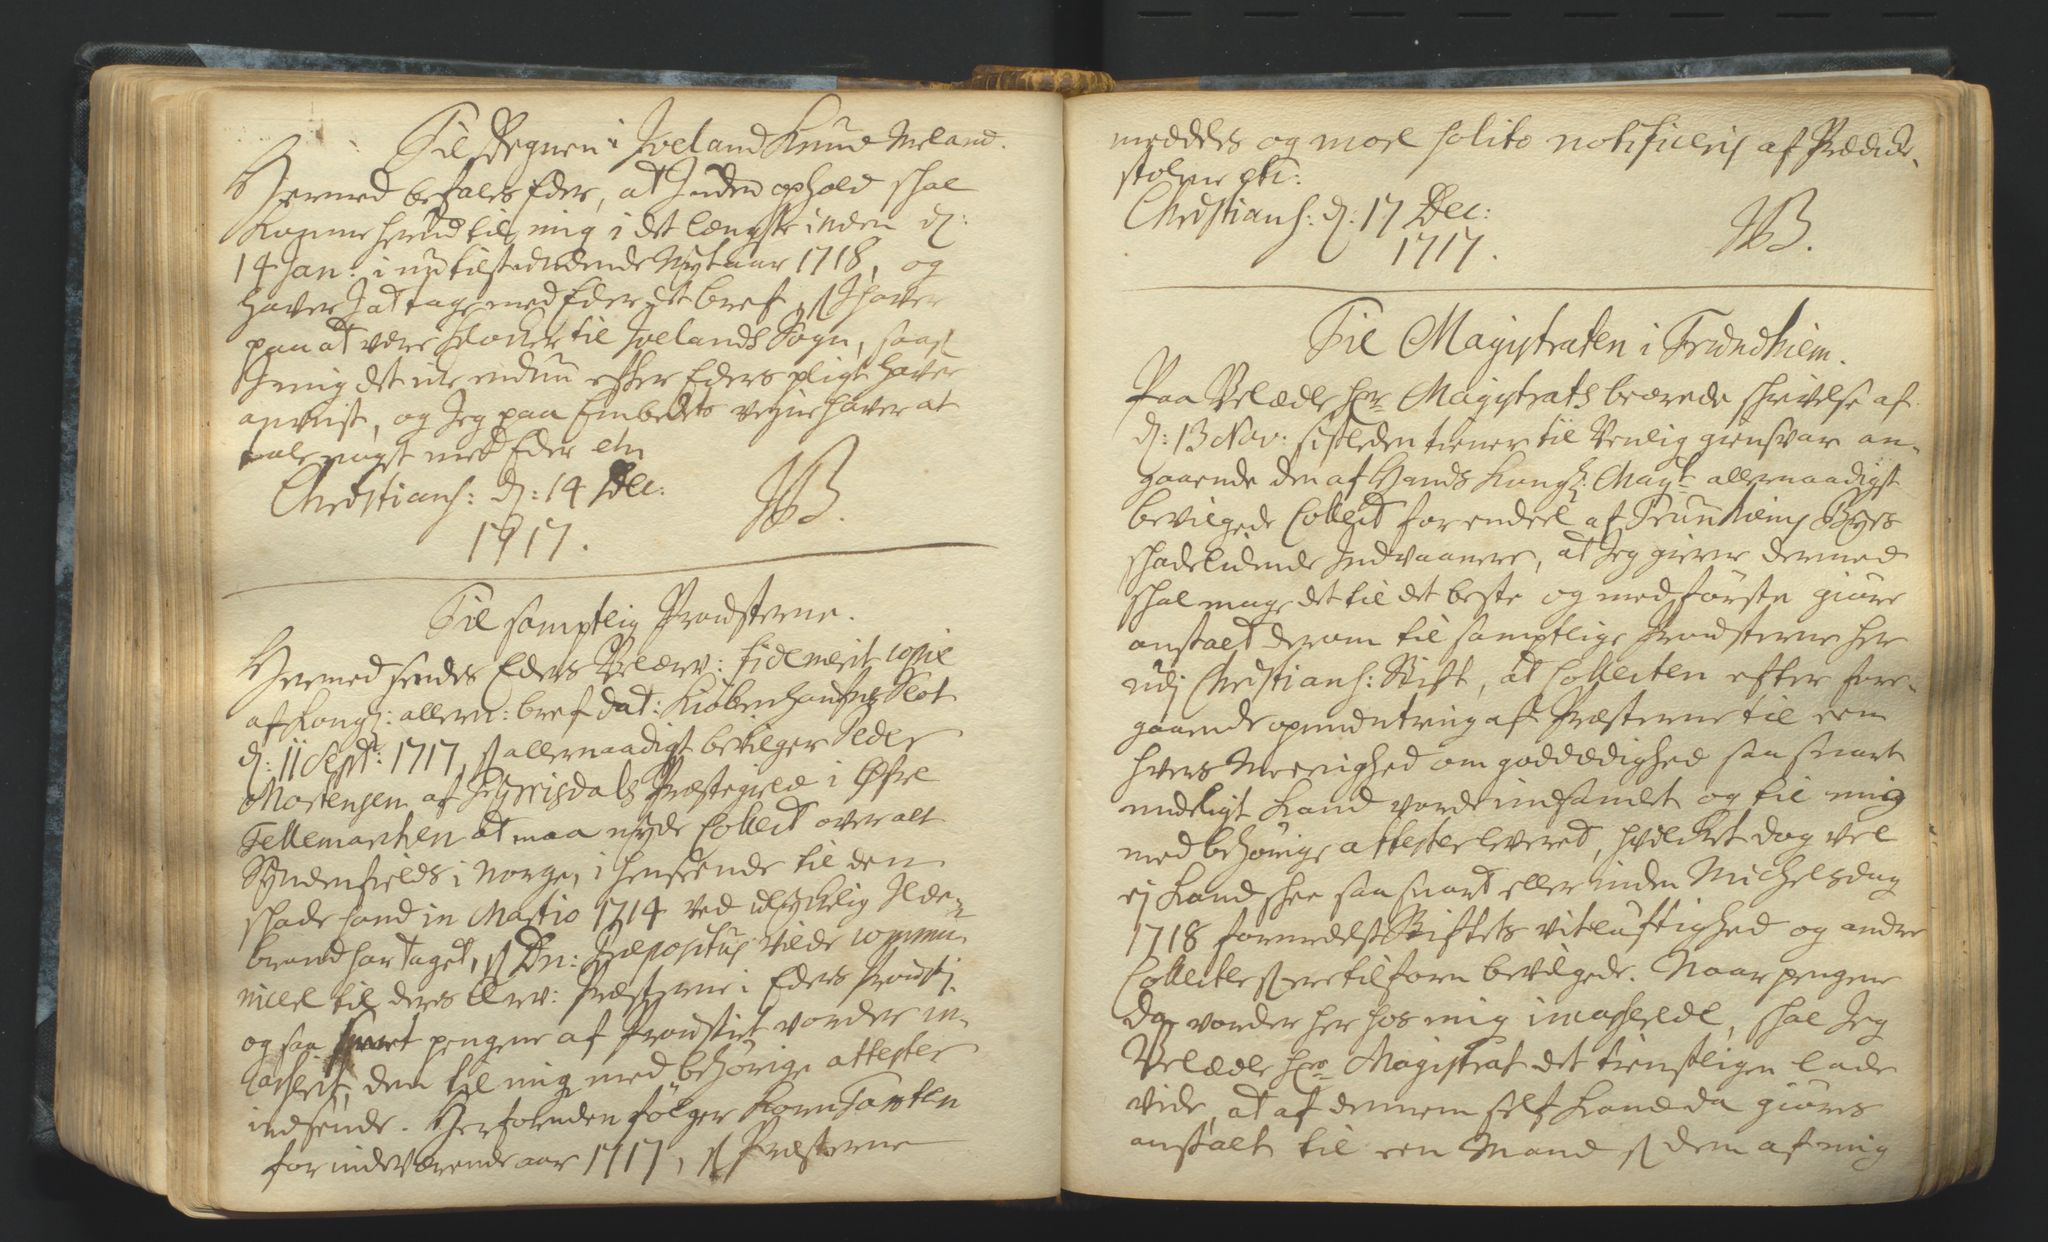 Til Degnen i Iveland Knud Meland.
Hermed befales Eder, at I uden ophold skal
komme herud til mig i det længste inden d:
14 Jan: i nu tilstundende Nyt aar 1718, og
haver I at tage med Eder det bref, s: I haver
paa at være Klocker til Ivelands Sogn, saas:
I mig det icke endnu efter Eders pligt haver
anviist, og Jeg paa Embedets vegne haver at
tale noget med Eder etc
Christians: d: 14 Dec:
1717. JB.
Til samptlig Provsterne.
Hermed sendes Eders Velærv: fidemeret copie
af Kongl: allern: bref dat: Kiøbenhaufns Slot
d: 11 Sept: 1717, s: allernaadigst bevilger Peder
Mortensen af Hvidisdals Præstegield i Øfre
Tellemarken at maa nyde Collect over alt
Syndenfields i Norge, i henseende til den
skade hand in Martio 1714 ved ulyckelig Ilde-
brand har taget, s: Dn: Præpositus vilde commu-
nicere til deres Ærv: Præsterne i Eders Provstj
og saa snart pengene af Provstiet vorder in-
casserit, dem til mig med behørige attester
indsende. Herforuden følger KornTaxten
for indeværende aar 1717, s: Præsterne
meddeles og more solito notificeris af Prædicke-
stolene etc:
Christians: d: 17 Dec:
1717. JB.
Til Magistraten i Trundhiem.
Paa Velædle Hrr Magistrats beærede skrivelse af
d: 13 Nov: sistleden tiener til Venlig giensvar an-
gaaende den af Hands Kongl: Mayt allernaadigst
bevilgede Collect for endeel af Trunhiems Byes
skadelidende Indvaanere, at Jeg gierne dermed
skal mage det til det beste og med første giøre
anstalt derom til samptlige Provsterne her
udj Christians: Stift, at Collecten efter fore-
gaaende opmuntring af Præsterne til een
hvers Meenighed om goddædighed saa snart
mueligt kand vorde indsamlet og til mig
med behørige attester leveret, hvilcket dog vel
ej kand skee saa snart eller inden Michelsdag
1718 formedelst Stiftets vitløftighed og andre
Collecter s: ere tilforn bevilgede. Naar pengene
da vorder her hos mig incasserede, skal Jeg
Velædle Hrr Magistrat det tienstligen lade
vide, at af dennem self kand da giøres
anstalt til een Mand s: dem af mig